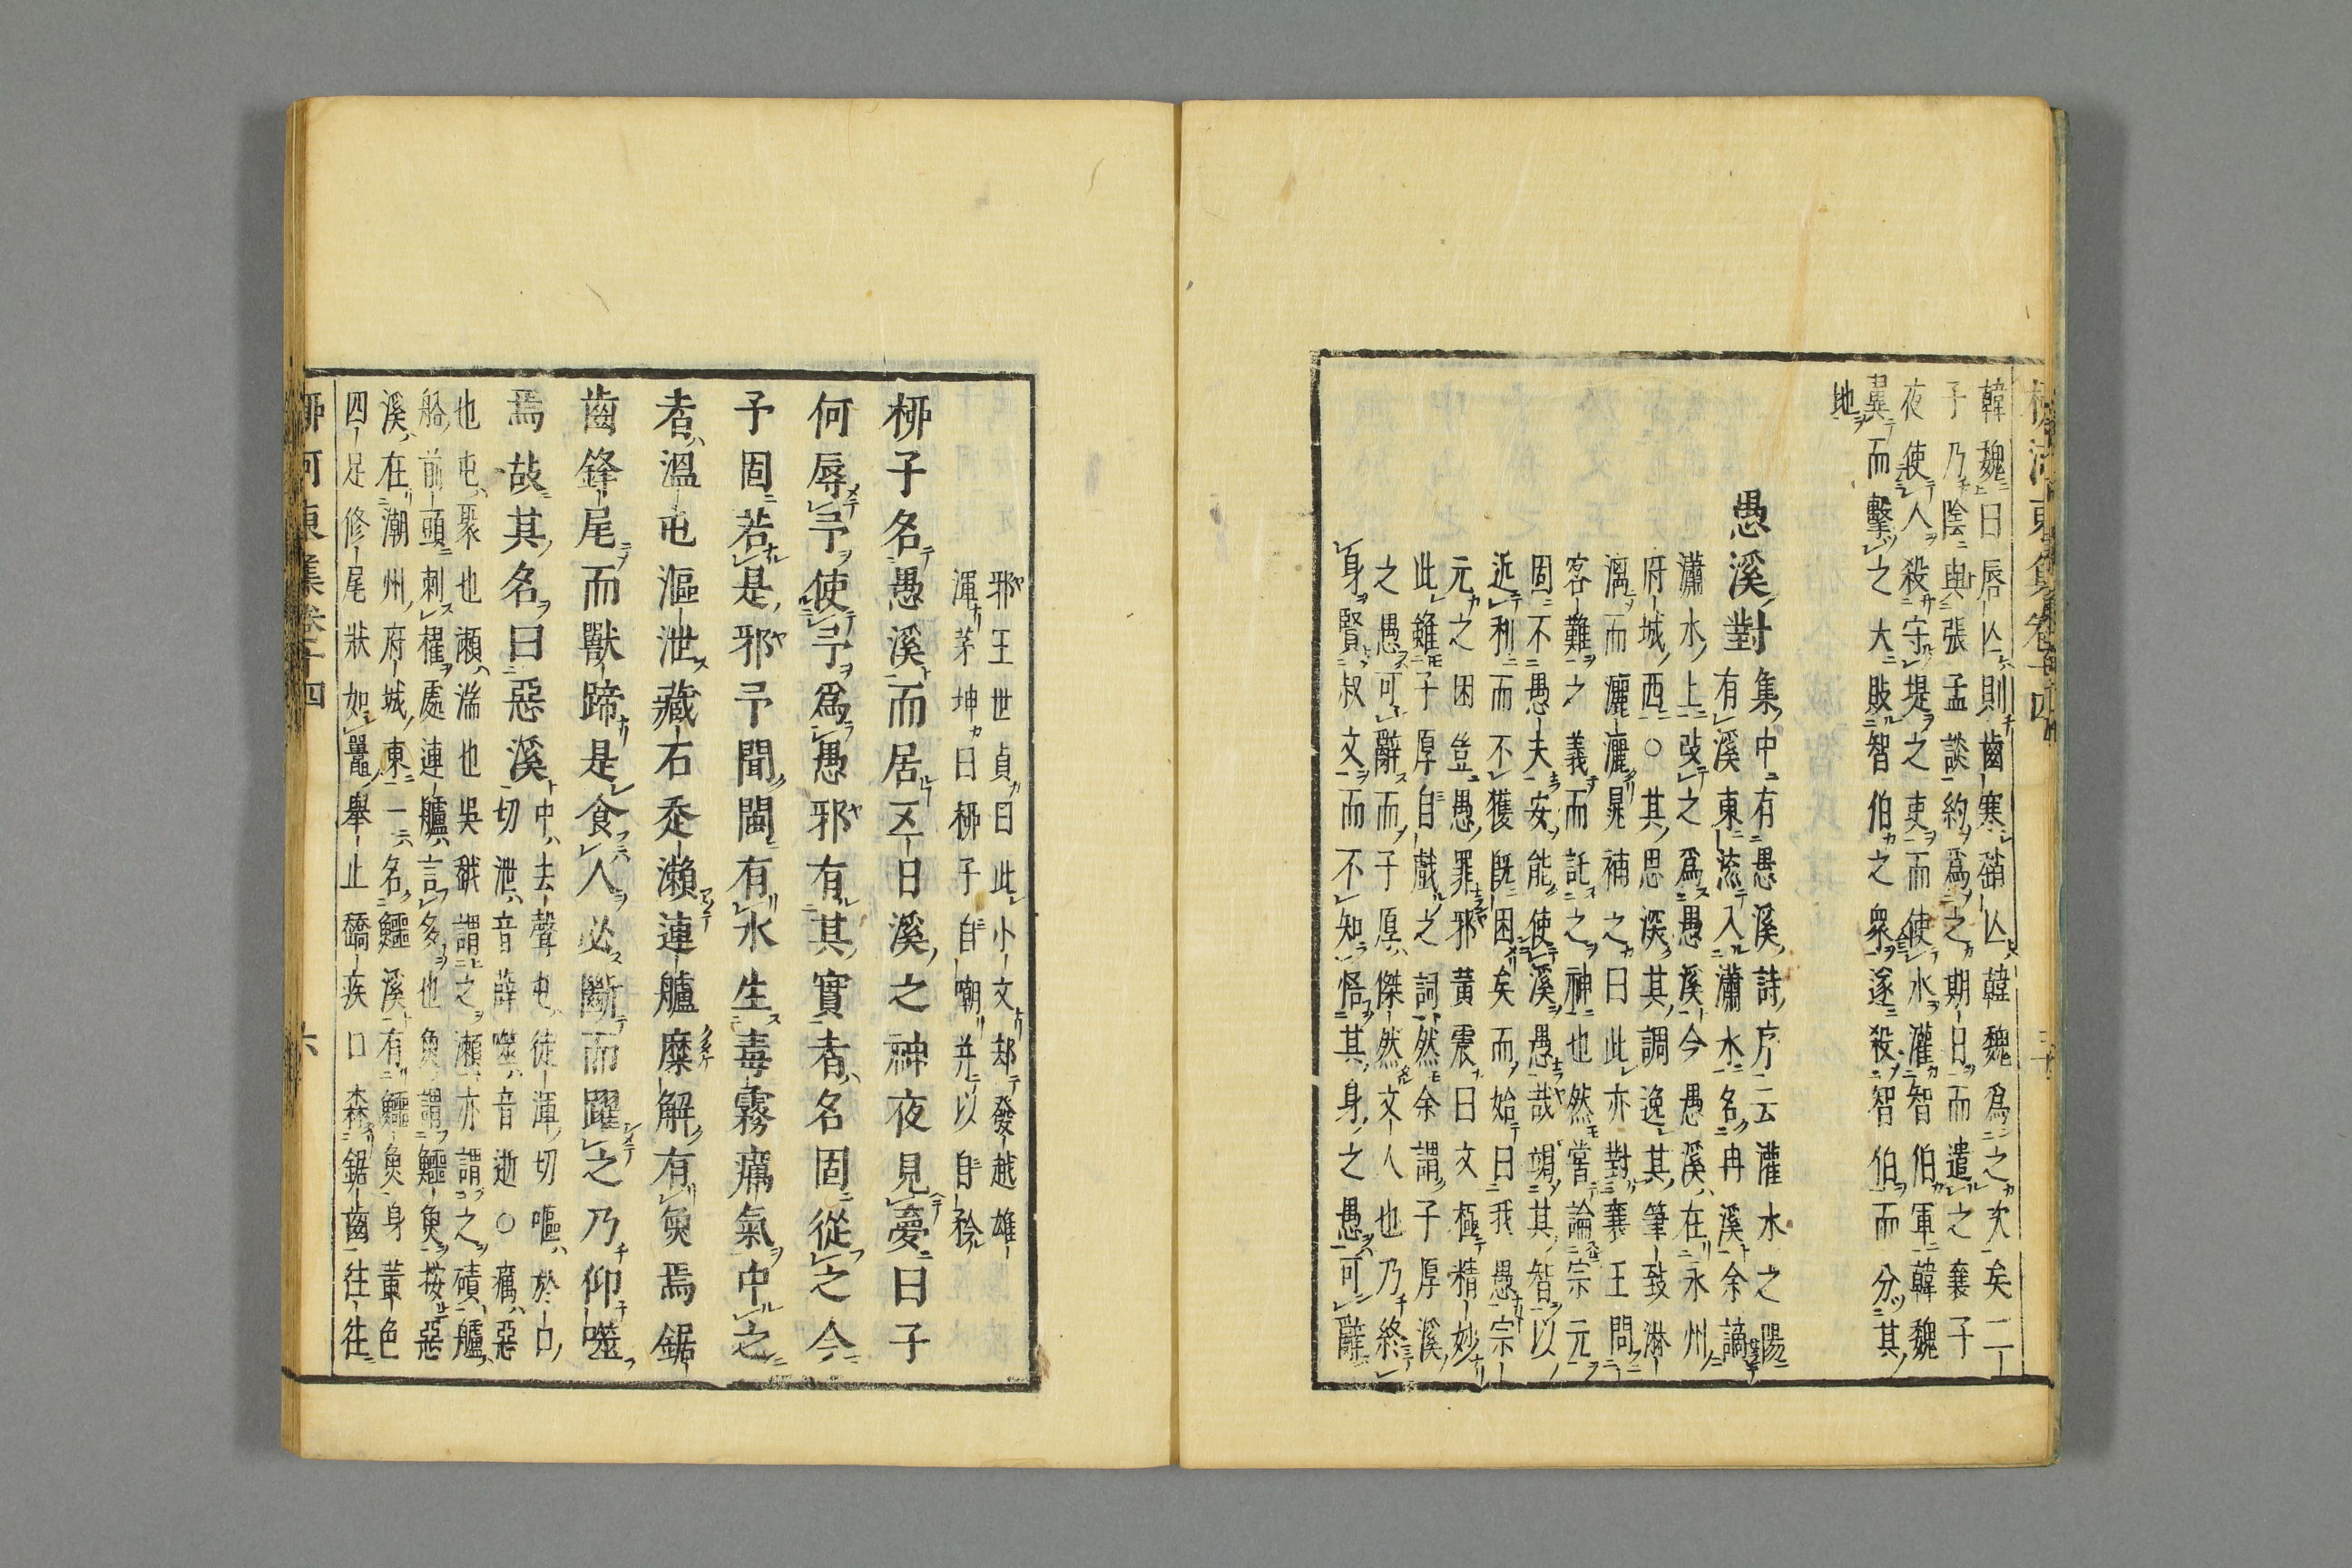 韓魏曰唇亾則齒寒趙亾韓魏爲之次矣二
子乃陰與張孟談約爲之期日而遣之襄子
夜使人殺守堤之吏而使水灌智伯軍韓魏
翼而擊之大敗智伯之衆遂殺智伯而分其
地
愚溪對
集中有愚溪詩序云灌水之陽
有溪東流入瀟水名冉溪余謫
瀟水上改之爲愚溪今愚溪在永州
府城西○其思深其調逸其筆致淋
漓而灑灑晁補之曰此亦對襄王問
客難之義而託之神也然嘗論宗元
固不愚夫安能使溪愚哉竭其智以
近利而不獲旣困矣而始曰我愚宗
元之困豈愚罪邪黃震曰文極精妙
此雖子厚自戲之詞然余謂子厚溪
之愚可辭而子厚傑然文人也乃終
身賢叔文而不知悟其身之愚可辭
邪王世貞曰此小文却發越雄
渾茅坤曰柳子自嘲并以自矜
柳子名愚溪而居五日溪之神夜見夢曰子
何辱予使予爲愚邪有其實者名固從之今
予固若是邪予聞閩有水生毒霧癘氣中之
者溫屯漚泄藏石走瀨連艫糜解有魚焉鋸
齒鋒尾而獸蹄是食人必斷而躍之乃仰噬
焉故其名曰惡溪
中去聲屯徒渾切嘔於口
切泄音薛噬音逝○癘惡
也屯聚也瀨湍也吳越謂之瀨亦謂之磧艫
船前頭刺櫂處連艫言多也魚謂鱷魚按惡
溪在潮州府城東一名鱷溪有鱷魚身黃色
四足修尾狀如鼉舉止趫疾口森鋸齒往往
柳河東集卷十四
六